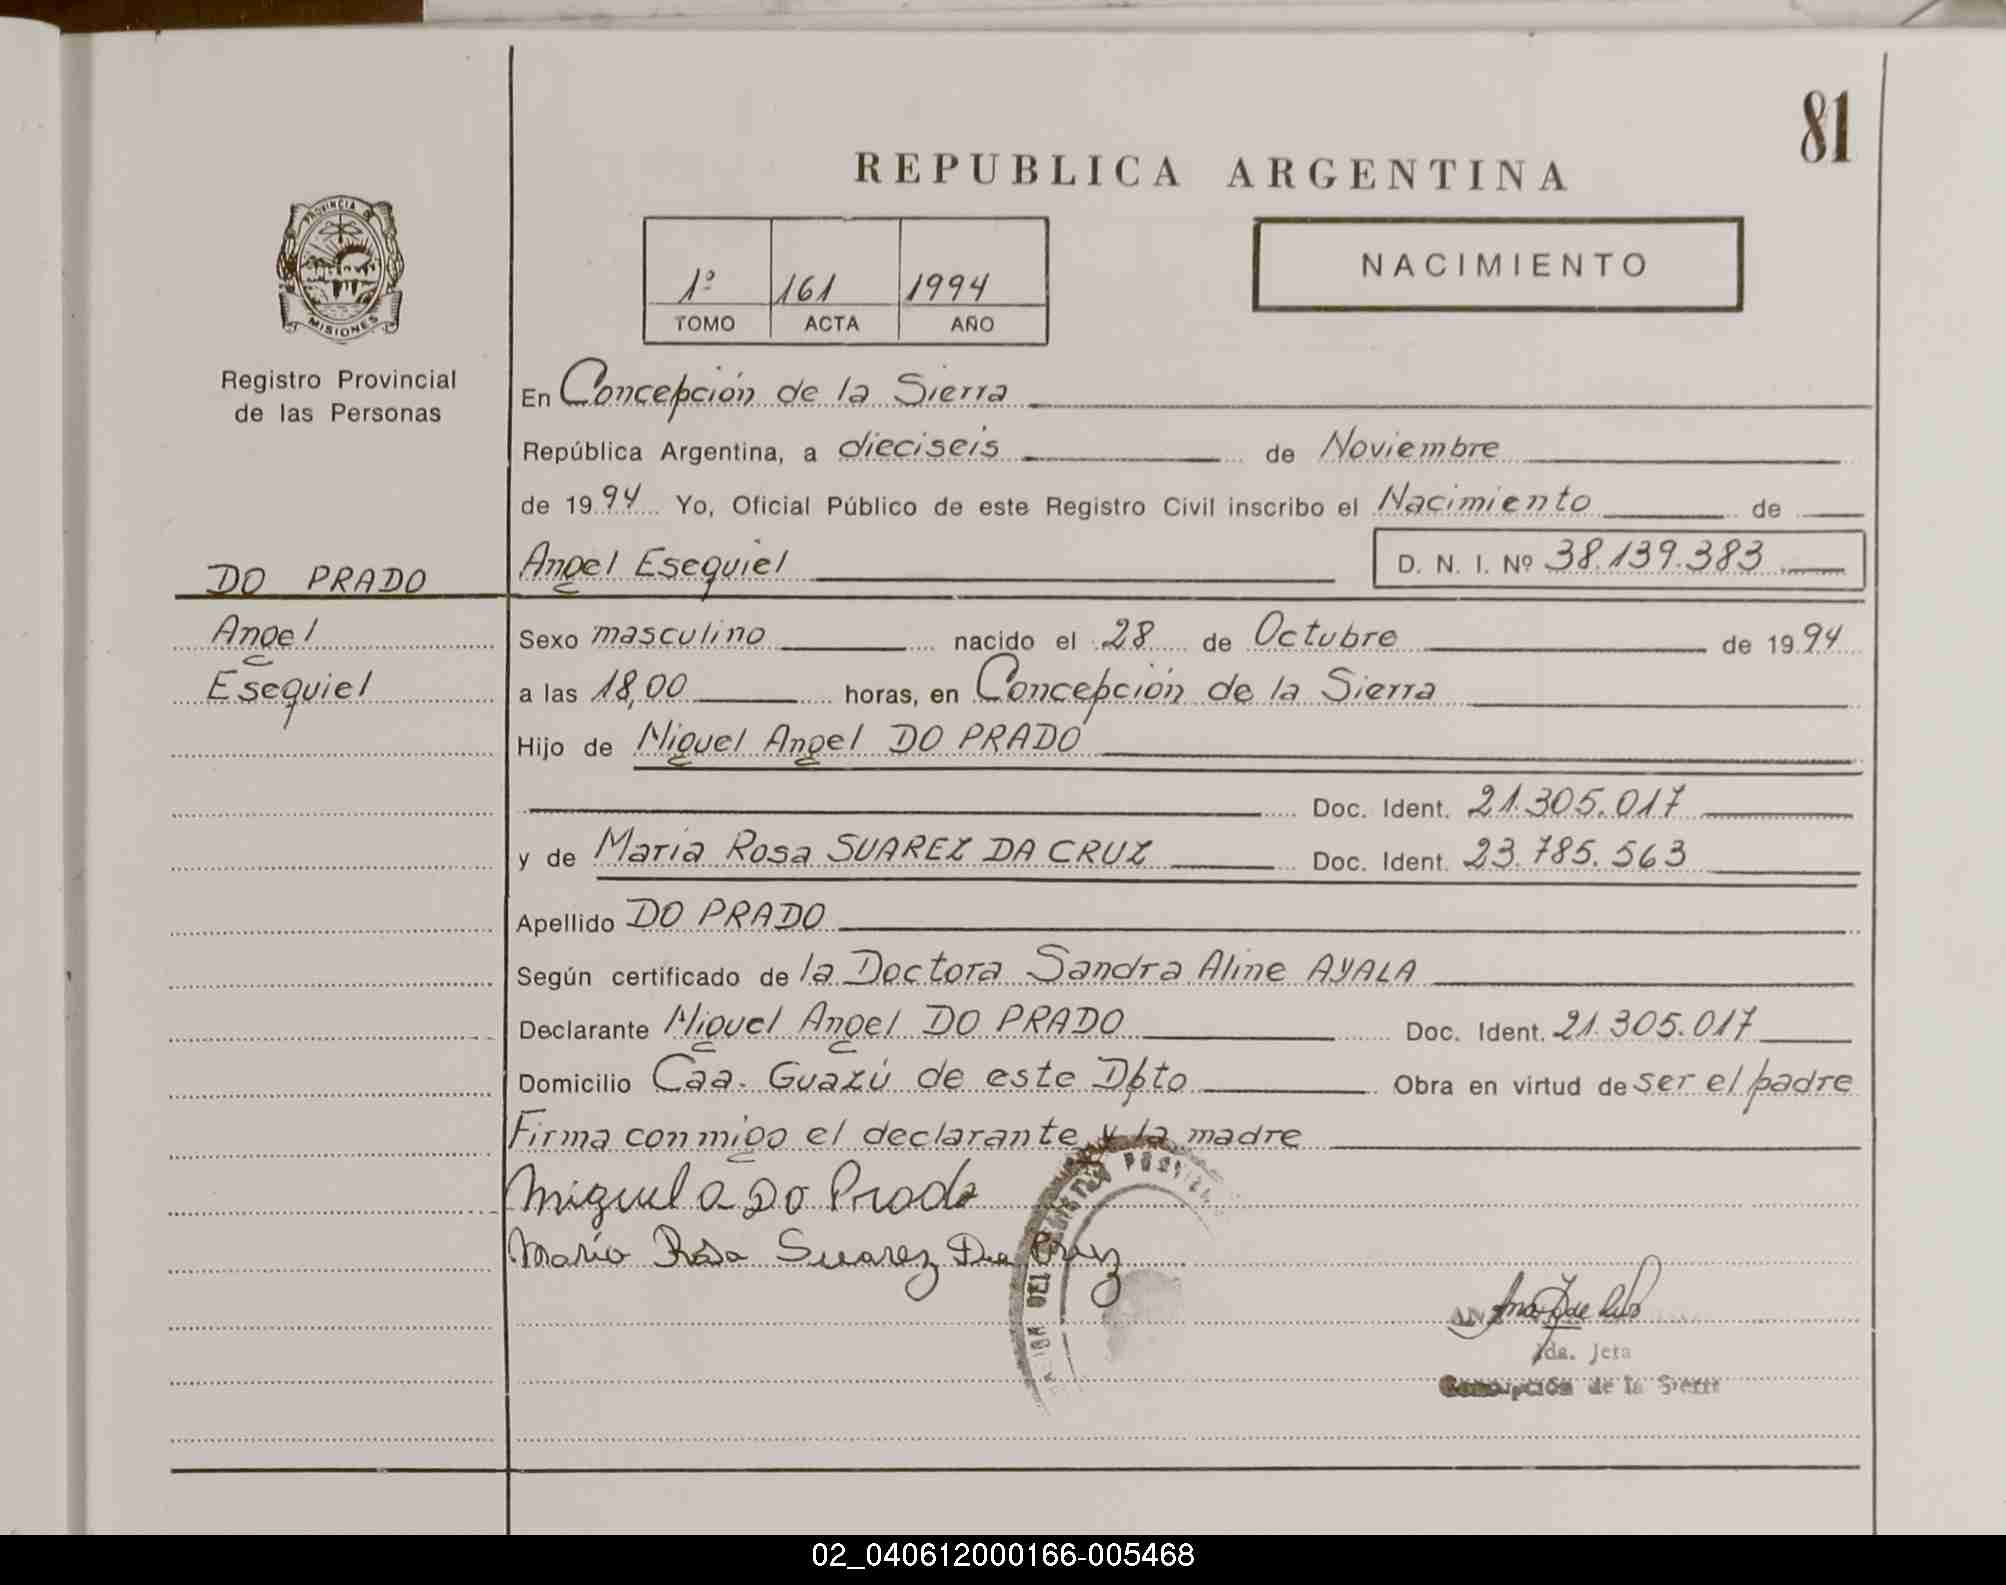 81
REPUBLICA ARGENTINA
PROVINCIA DE
MISIONES
Registro Provincial
de las Personas
1º 161 1994
TOMO ACTA AÑO
NACIMIENTO
En Concepción de la Sierra
República Argentina, a dieciseis de Noviembre
de 1994 Yo, Oficial Público de este Registro Civil inscribo el Nacimiento de
DO PRADO
Angel Esequiel D. N. I. Nº 38.139.383
Angel
Sexo masculino nacido el 28 de Octubre de 1994
Esequiel
a las 18,00 horas, en Concepción de la Sierra
Hijo de Miguel Angel DO PRADO
Doc. Ident. 21.305.017
y de Maria Rosa SUAREZ DA CRUZ Doc. Ident. 23.785.563
Apellido DO PRADO
Según certificado de la Doctora Sandra Aline AYALA
Declarante Miguel Angel DO PRADO Doc. Ident. 21.305.017
Domicilio Caa-Guazú de este Dpto Obra en virtud de ser el padre
Firma conmigo el declarante y la madre
Miguel A Do Prado
Maria Rosa Suarez Da Cruz
DEL
Jefa
Concepción de la Sierra
02_040612000166-005468